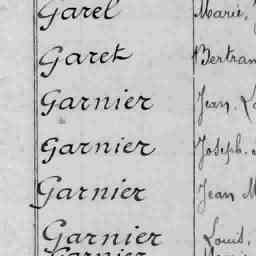 Garel Marie,
Garet Bertran
Garnier Jean. L
Garnier Joseph.
Garnier Jean M
Garnier Louis,
Garnier